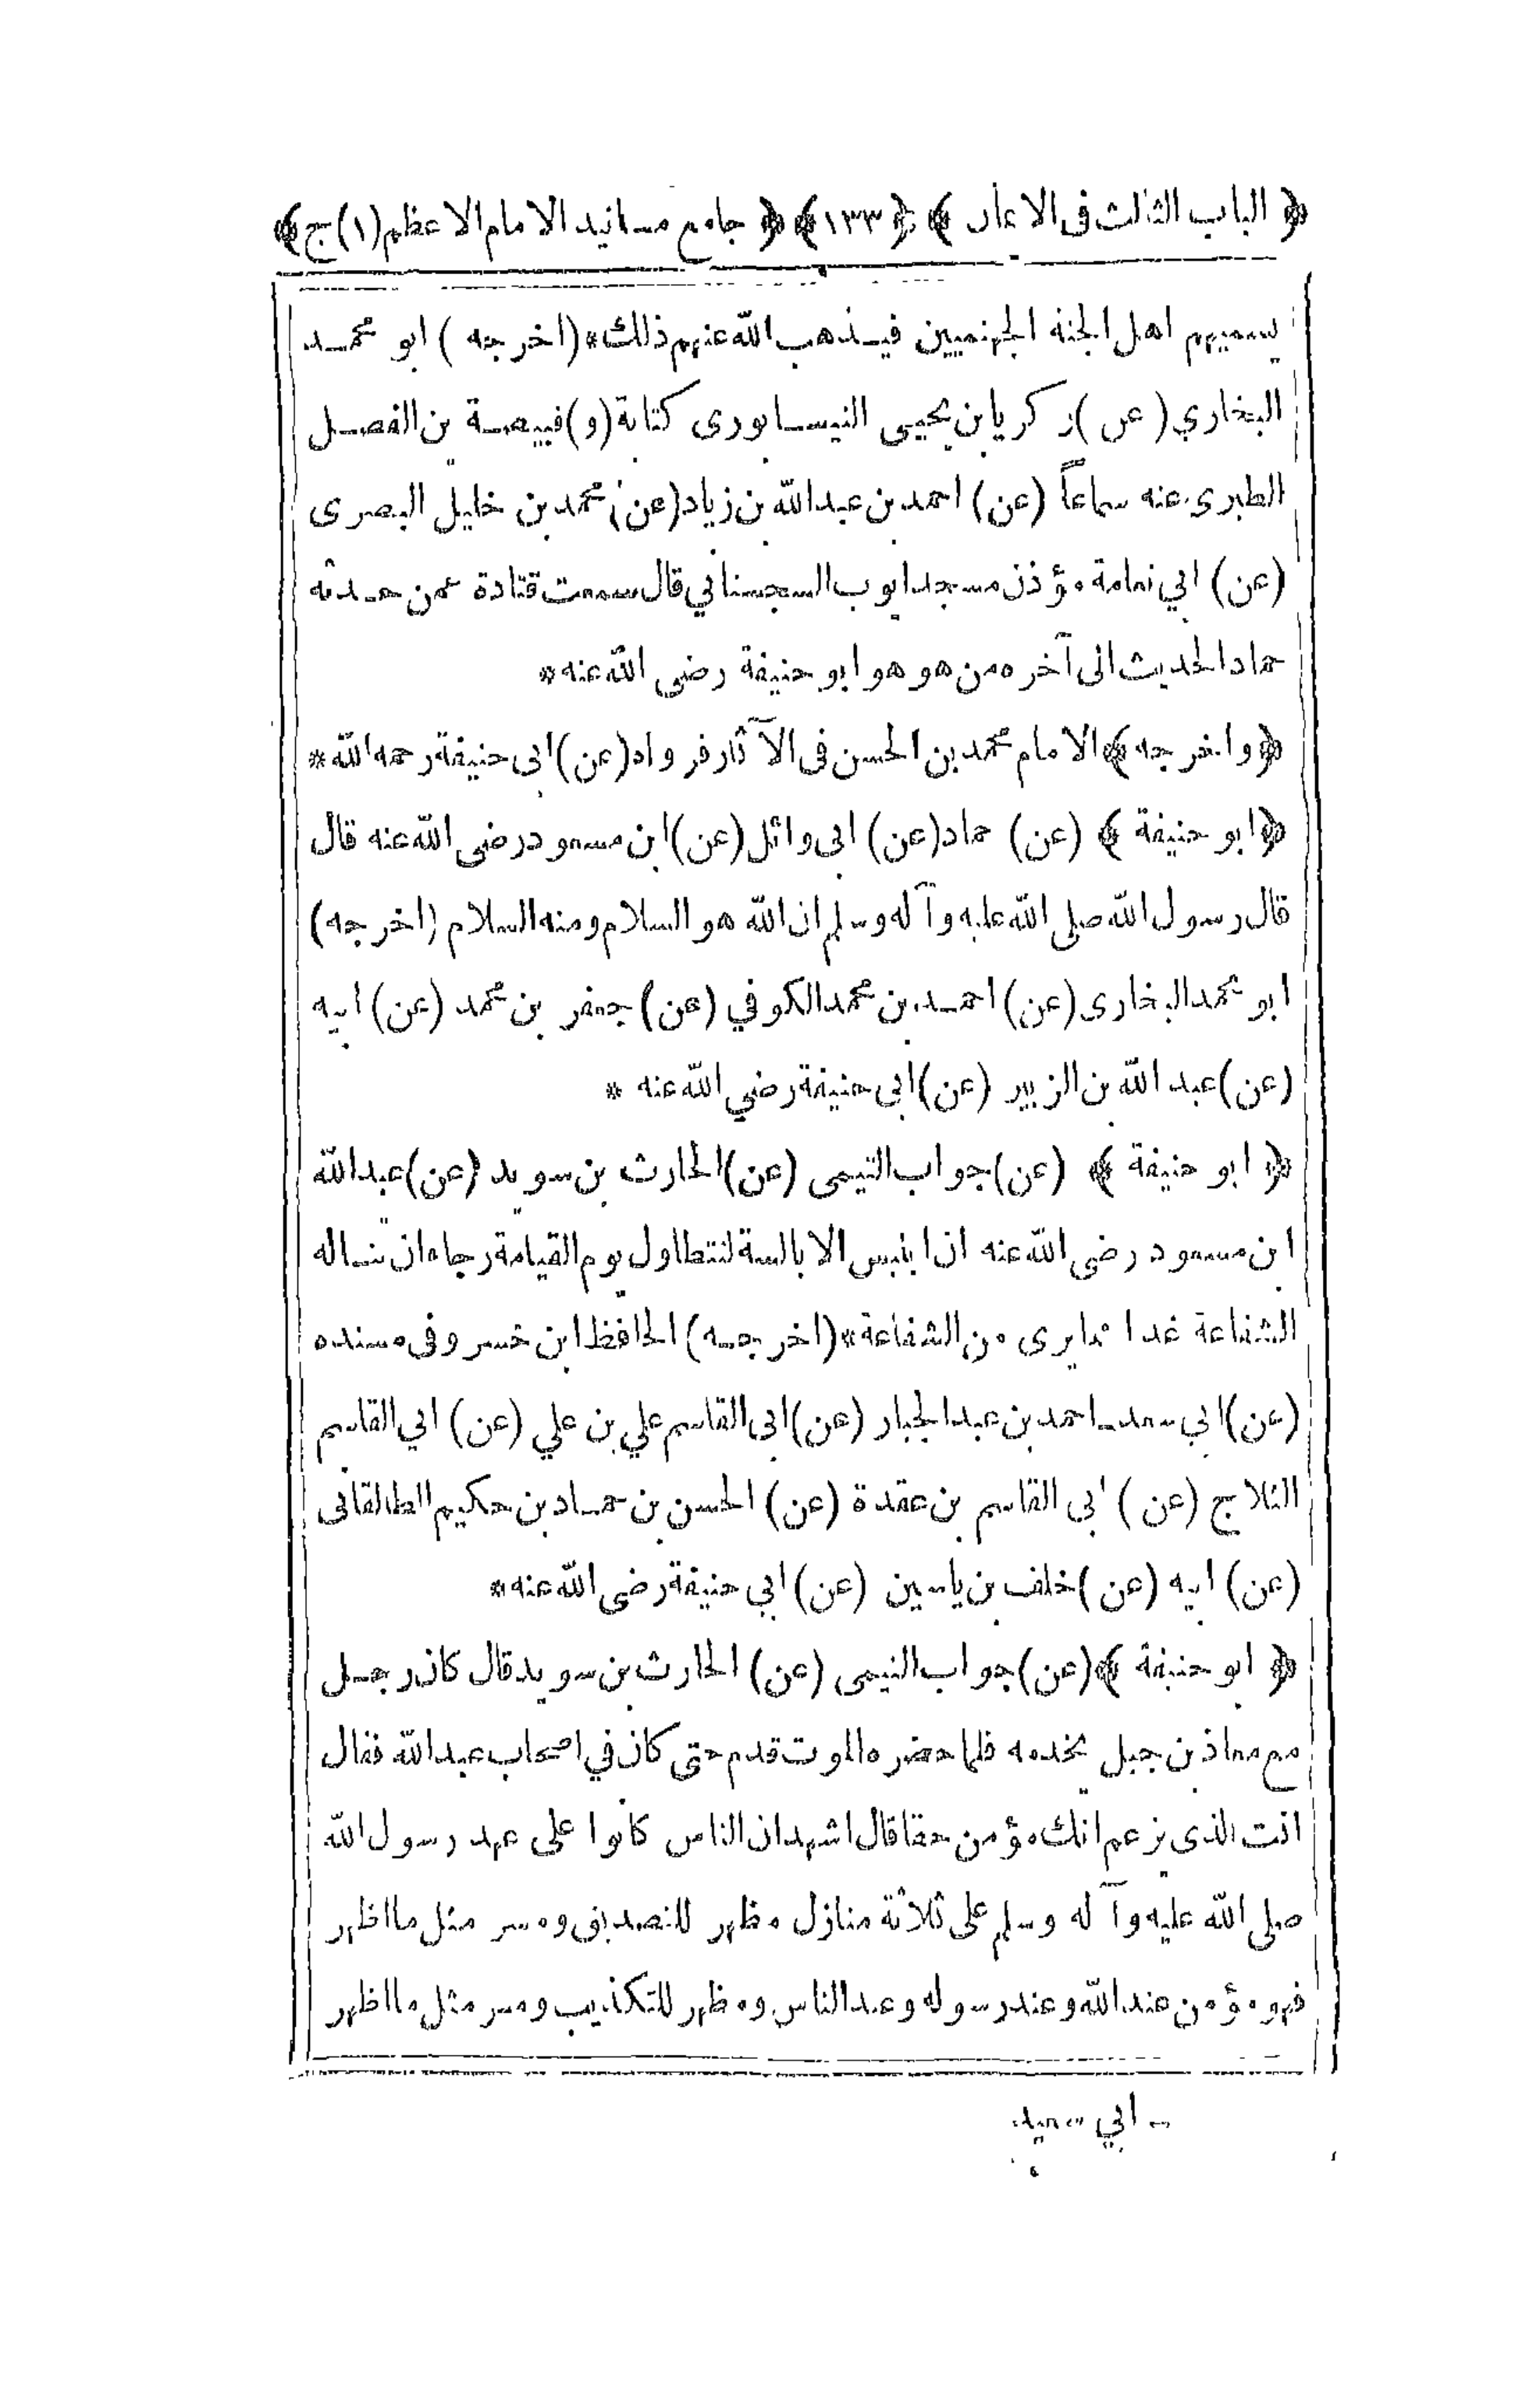 ﴿ الباب الثالث فى الايمان ﴾ ﴿١٣٣﴾ ﴿ جامع مسانيد الامام الاعظم (١) ج﴾
يسميهم اهل الجنة الجهنميين فيـذهب الله عنهم ذلك*(اخرجه ) ابو محمـد
البخاري (عن )زكريا بن يحيى النيسـابورى كتابة (و) قبيصـة بن الفضـل
الطبرى عنه سماعاً (عن) احمد بن عبد الله بن زياد (عن) محمد بن خليل البصرى
(عن) ابي تمامة مؤذن مسجد ايوب السجستاني قال سمعت قتادة عمن حـدثه
حماد الحديث الى آخره من هو هو ابو حنيفة رضى الله عنه *
﴿واخرجه﴾ الامام محمد بن الحسن فى الآثار فرواه (عن) ابى حنيفة رحمه الله *
﴿ابو حنيفة ﴾ (عن) حماد (عن) ابى وائل (عن) ابن مسعود رضى الله عنه قال
قال رسول الله صلى الله عليه وآله وسلم ان الله هو السلام ومنه السلام (اخرجه)
ابو محمد البخارى (عن) احمـد بن محمد الكوفي (عن) جعفر بن محمد (عن) ابيه
(عن) عبد الله بن الزبير (عن) ابى حنيفة رضي الله عنه *
﴿ ابو حنيفة ﴾ (عن) جواب التيمى (عن) الحارث بن سويد (عن) عبد الله
ابن مسعود رضى الله عنه ان ابليس الابالسة لتتطاول يوم القيامة رجاء ان تنـاله
الشفاعة غدا مما يرى من الشفاعة*(اخرجـه) الحافظ ابن خسرو فى مسنده
(عن) ابي سعدـ احمد بن عبد الجبار (عن) ابى القاسم علي بن علي (عن) ابي القاسم
الثلاج (عن ) ابى القاسم بن عقدة (عن) الحسن بن حمـاد بن حكيم الطالقانى
(عن) ابيه (عن )خلف بن ياسين (عن) ابي حنيفة رضى الله عنه*
﴿ ابو حنيفة ﴾(عن) جواب التيمى (عن) الحارث بن سويد قال كان رجـل
مع معاذ بن جبل يخدمه فلما حضره الموت قدم حتى كان في اصحاب عبد الله فقال
انت الذى يزعم انك مؤمن حقا قال اشهد ان الناس كانوا على عهد رسول الله
صلى الله عليه وآله وسلم على ثلاثة منازل مظهر للتصديق ومسر مثل ما اظهر
فهو مؤمن عند الله وعند رسوله وعند الناس ومظهر للتكذيب ومسر مثل ما اظهر
ـ ابي سعيد